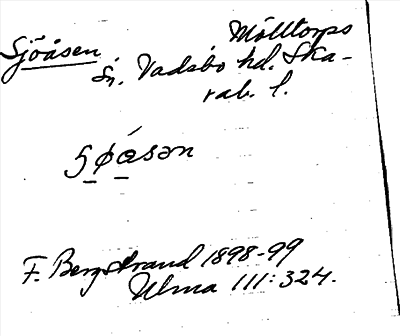 Sjöåsen
Mölltorps
sn. Vadsbo hd. Ska-
rab. l.
ʂø̀ɑsən
F. Bergstrand 1898-99
Ulma 111:324.